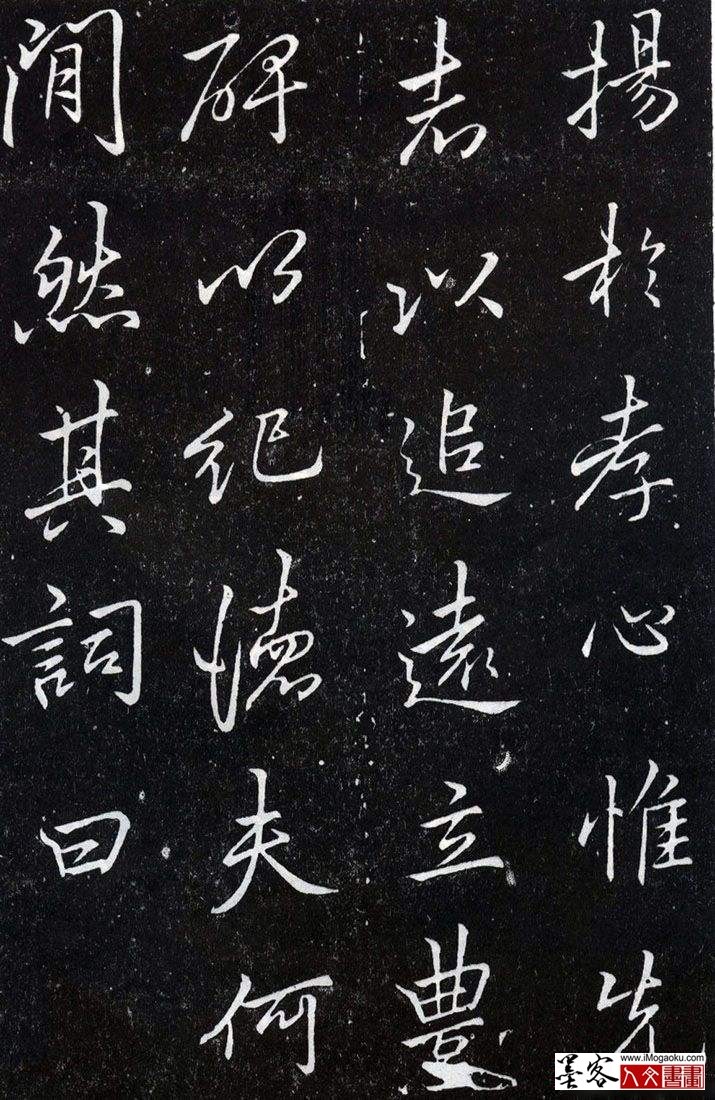 揚於孝心惟先
者以追遠立豊
碑以紀德夫何
閒然其詞曰
墨客
www.iMogaoku.com
人文書畫